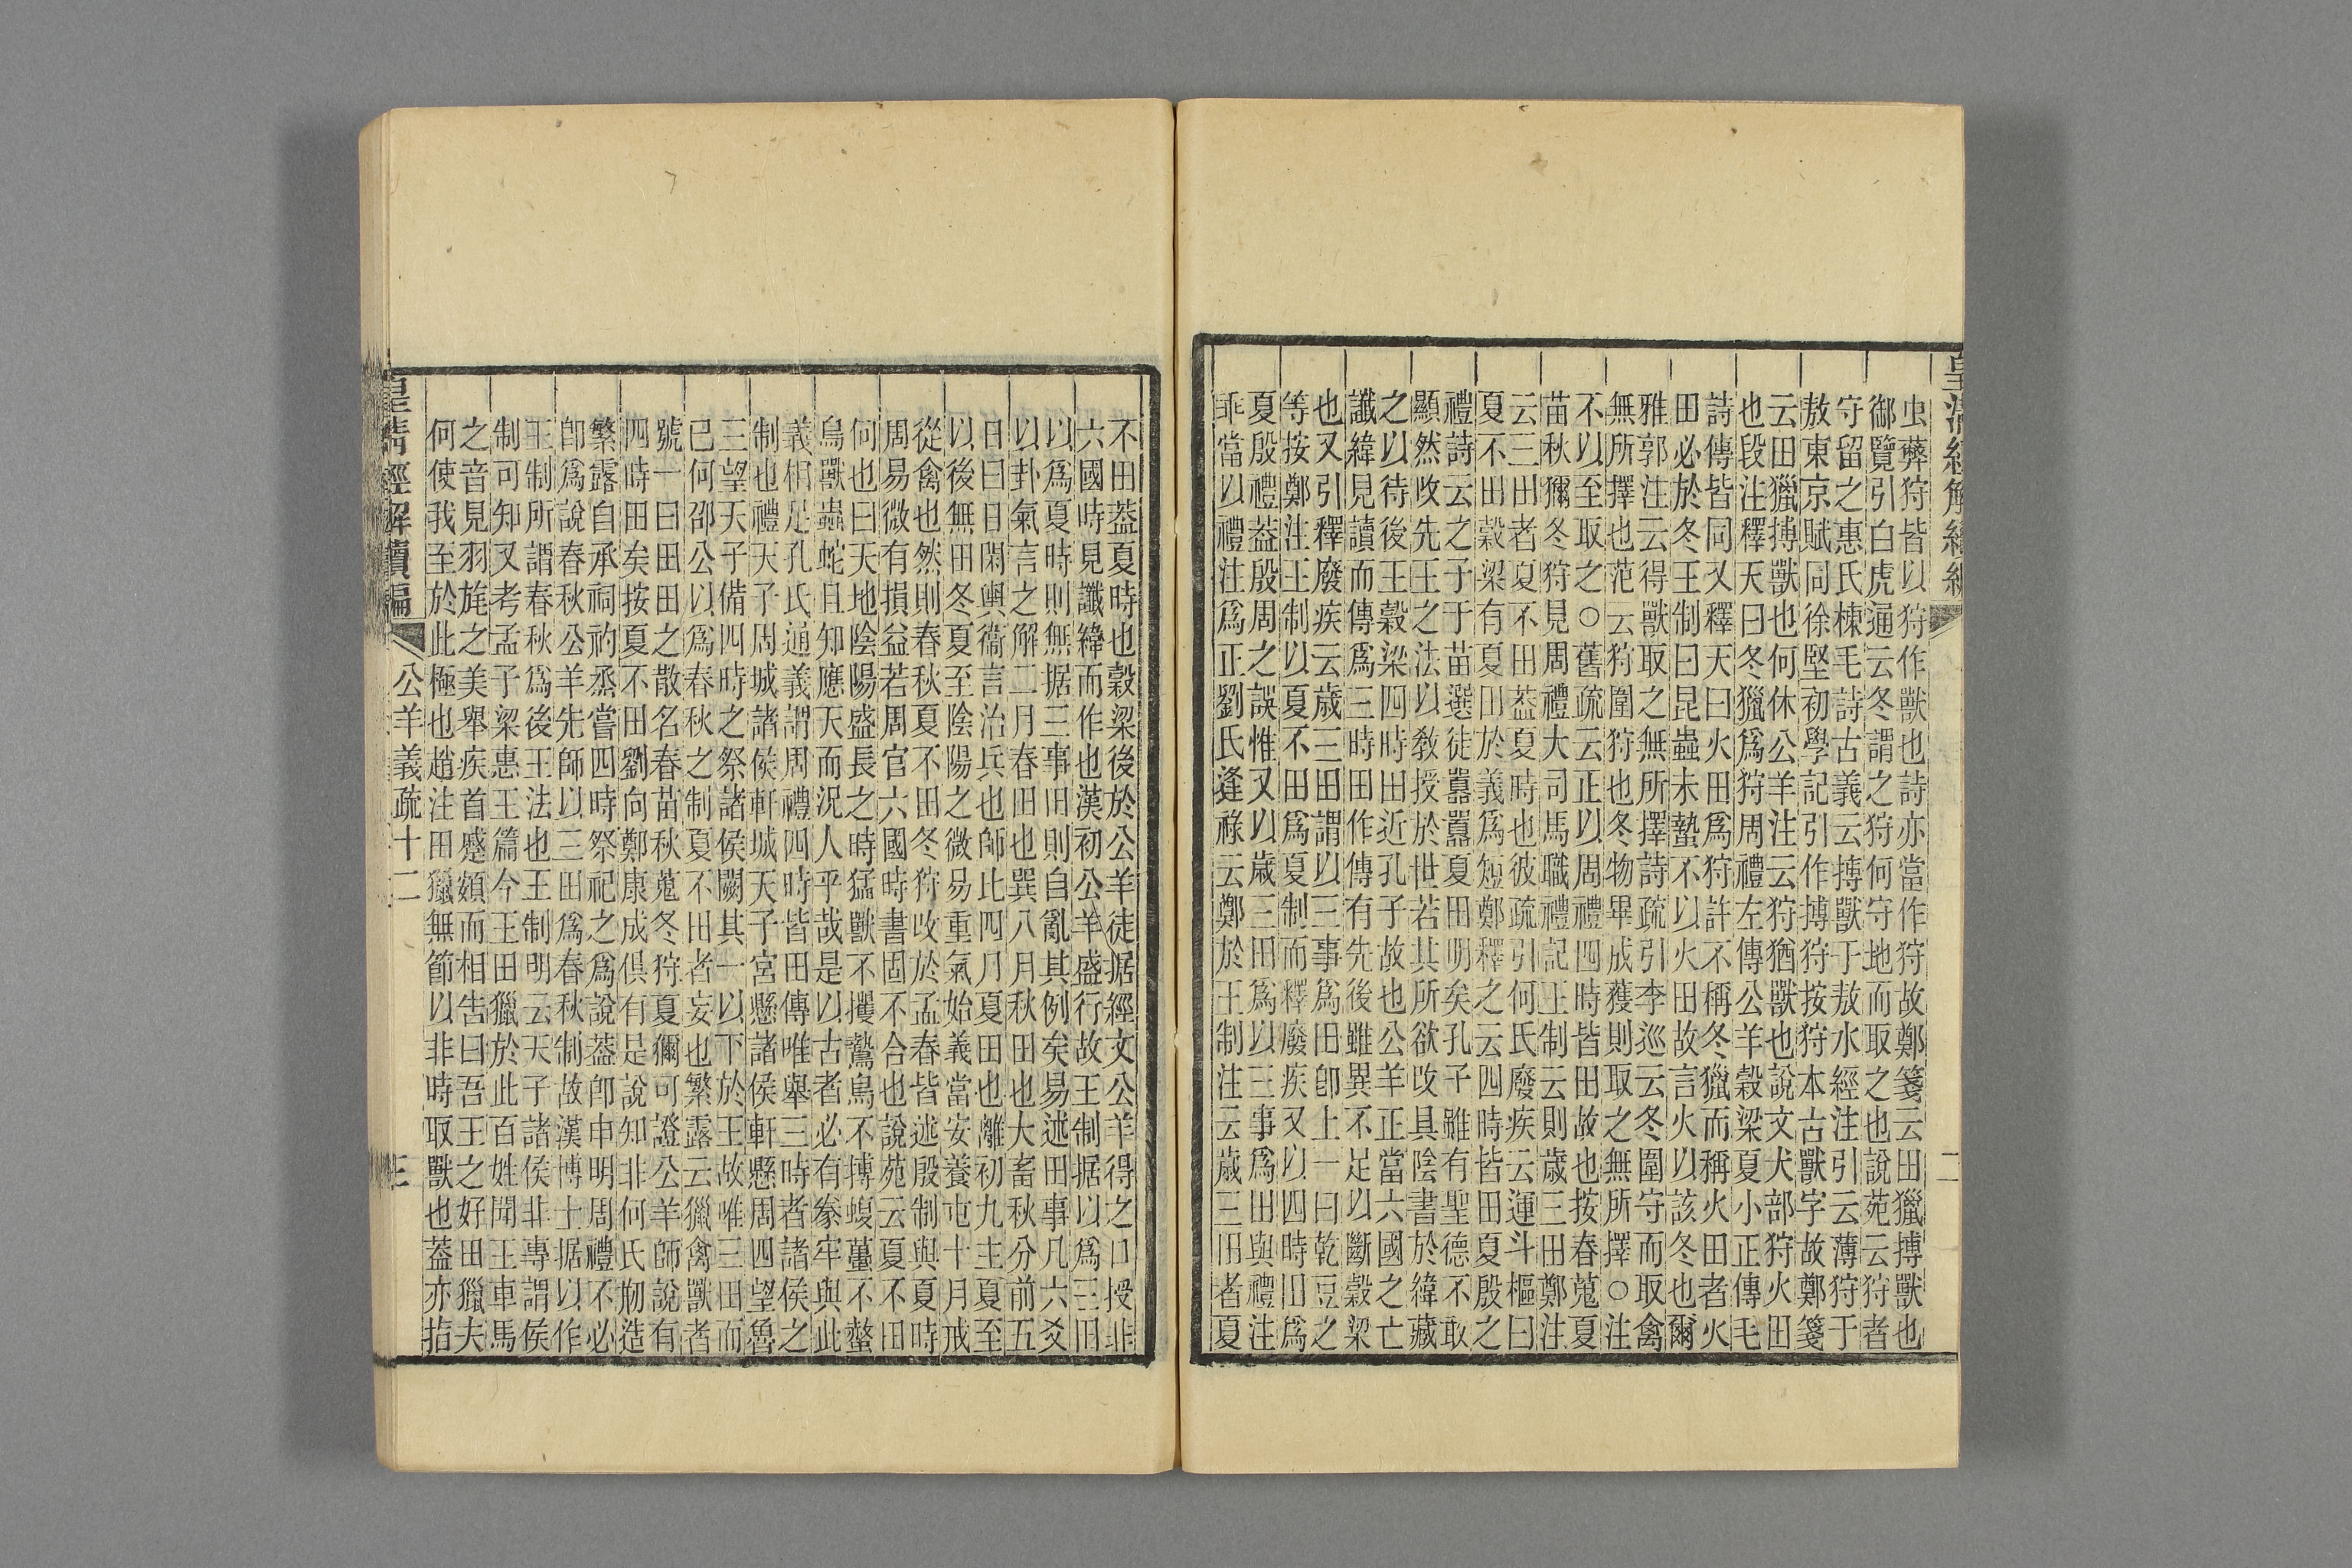 皇清經解續編
二
虫獘狩皆以狩作獸也詩亦當作狩故鄭箋云田獵搏獸也
御覽引白虎通云冬謂之狩何守地而取之也說苑云狩者
守留之惠氏棟毛詩古義云搏獸于敖水經注引云薄狩于
敖東京賦同徐堅初學記引作搏狩按狩本古獸字故鄭箋
云田獵搏獸也何休公羊注云狩猶獸也說文犬部狩火田
也段注釋天曰冬獵爲狩周禮左傳公羊穀梁夏小正傳毛
詩傳皆同又釋天曰火田爲狩許不稱冬獵而稱火田者火
田必於冬王制曰昆蟲未蟄不以火田故言火以該冬也爾
雅郭注云得獸取之無所擇詩疏引李巡云冬圍守而取禽
無所擇也范云狩圍狩也冬物畢成獲則取之無所擇○注
不以至取之○舊疏云正以周禮四時皆田故也按春蒐夏
苗秋獮冬狩見周禮大司馬職禮記王制云則歲三田鄭注
云三田者夏不田蓋夏時也彼疏引何氏廢疾云運斗樞曰
夏不田穀梁有夏田於義爲短鄭釋之云四時皆田夏殷之
禮詩云之子于苗選徒囂囂夏田明矣孔子雖有聖德不敢
顯然改先王之法以敎授於世若其所欲改具陰書於緯藏
之以待後王穀梁四時田近孔子故也公羊正當六國之亡
讖緯見讀而傳爲三時田作傳有先後雖異不足以斷穀梁
也又引釋廢疾云歲三田謂以三事爲田卽上一曰乾豆之
等按鄭注王制以夏不田爲夏制而釋廢疾又以四時田爲
夏殷禮蓋殷周之誤惟又以歲三田爲以三事爲田與禮注
乖當以禮注爲正劉氏逢祿云鄭於王制注云歲三田者夏
不田蓋夏時也穀梁後於公羊徒据經文公羊得之口授非
六國時見讖緯而作也漢初公羊盛行故王制据以爲三田
以爲夏時則無据三事田則自亂其例矣易述田事凡六爻
以卦氣言之解二月春田也巽八月秋田也大畜秋分前五
日曰日閑輿衞言治兵也師比四月夏田也離初九主夏至
以後無田冬夏至陰陽之微易重氣始義當安養屯十月戒
從禽也然則春秋夏不田冬狩收於孟春皆述殷制與夏時
周易微有損益若周官六國時書固不合也說苑云夏不田
何也曰天地陰陽盛長之時猛獸不攫鷙鳥不搏蝮蠆不螫
鳥獸蟲蛇且知應天而況人乎哉是以古者必有豢牢與此
義相足孔氏通義謂周禮四時皆田傳唯舉三時者諸侯之
制也禮天子周城諸侯軒城天子宮懸諸侯軒懸周四望魯
三望天子備四時之祭諸侯闕其一以下於王故唯三田而
已何邵公以爲春秋之制夏不田者妄也繁露云獵禽獸者
號一曰田田之散名春苗秋蒐冬狩夏獮可證公羊師說有
四時田矣按夏不田劉向鄭康成俱有是說知非何氏刱造
繁露自承祠礿烝嘗四時祭祀之爲說蓋卽申明周禮不必
卽爲說春秋公羊先師以三田爲春秋制故漢博士据以作
王制所謂春秋爲後王法也王制明云天子諸侯非專謂侯
制可知又考孟子梁惠王篇今王田獵於此百姓聞王車馬
之音見羽旄之美舉疾首蹙頞而相告曰吾王之好田獵夫
何使我至於此極也趙注田獵無節以非時取獸也蓋亦指
皇清經解續編
公羊義疏十二
三